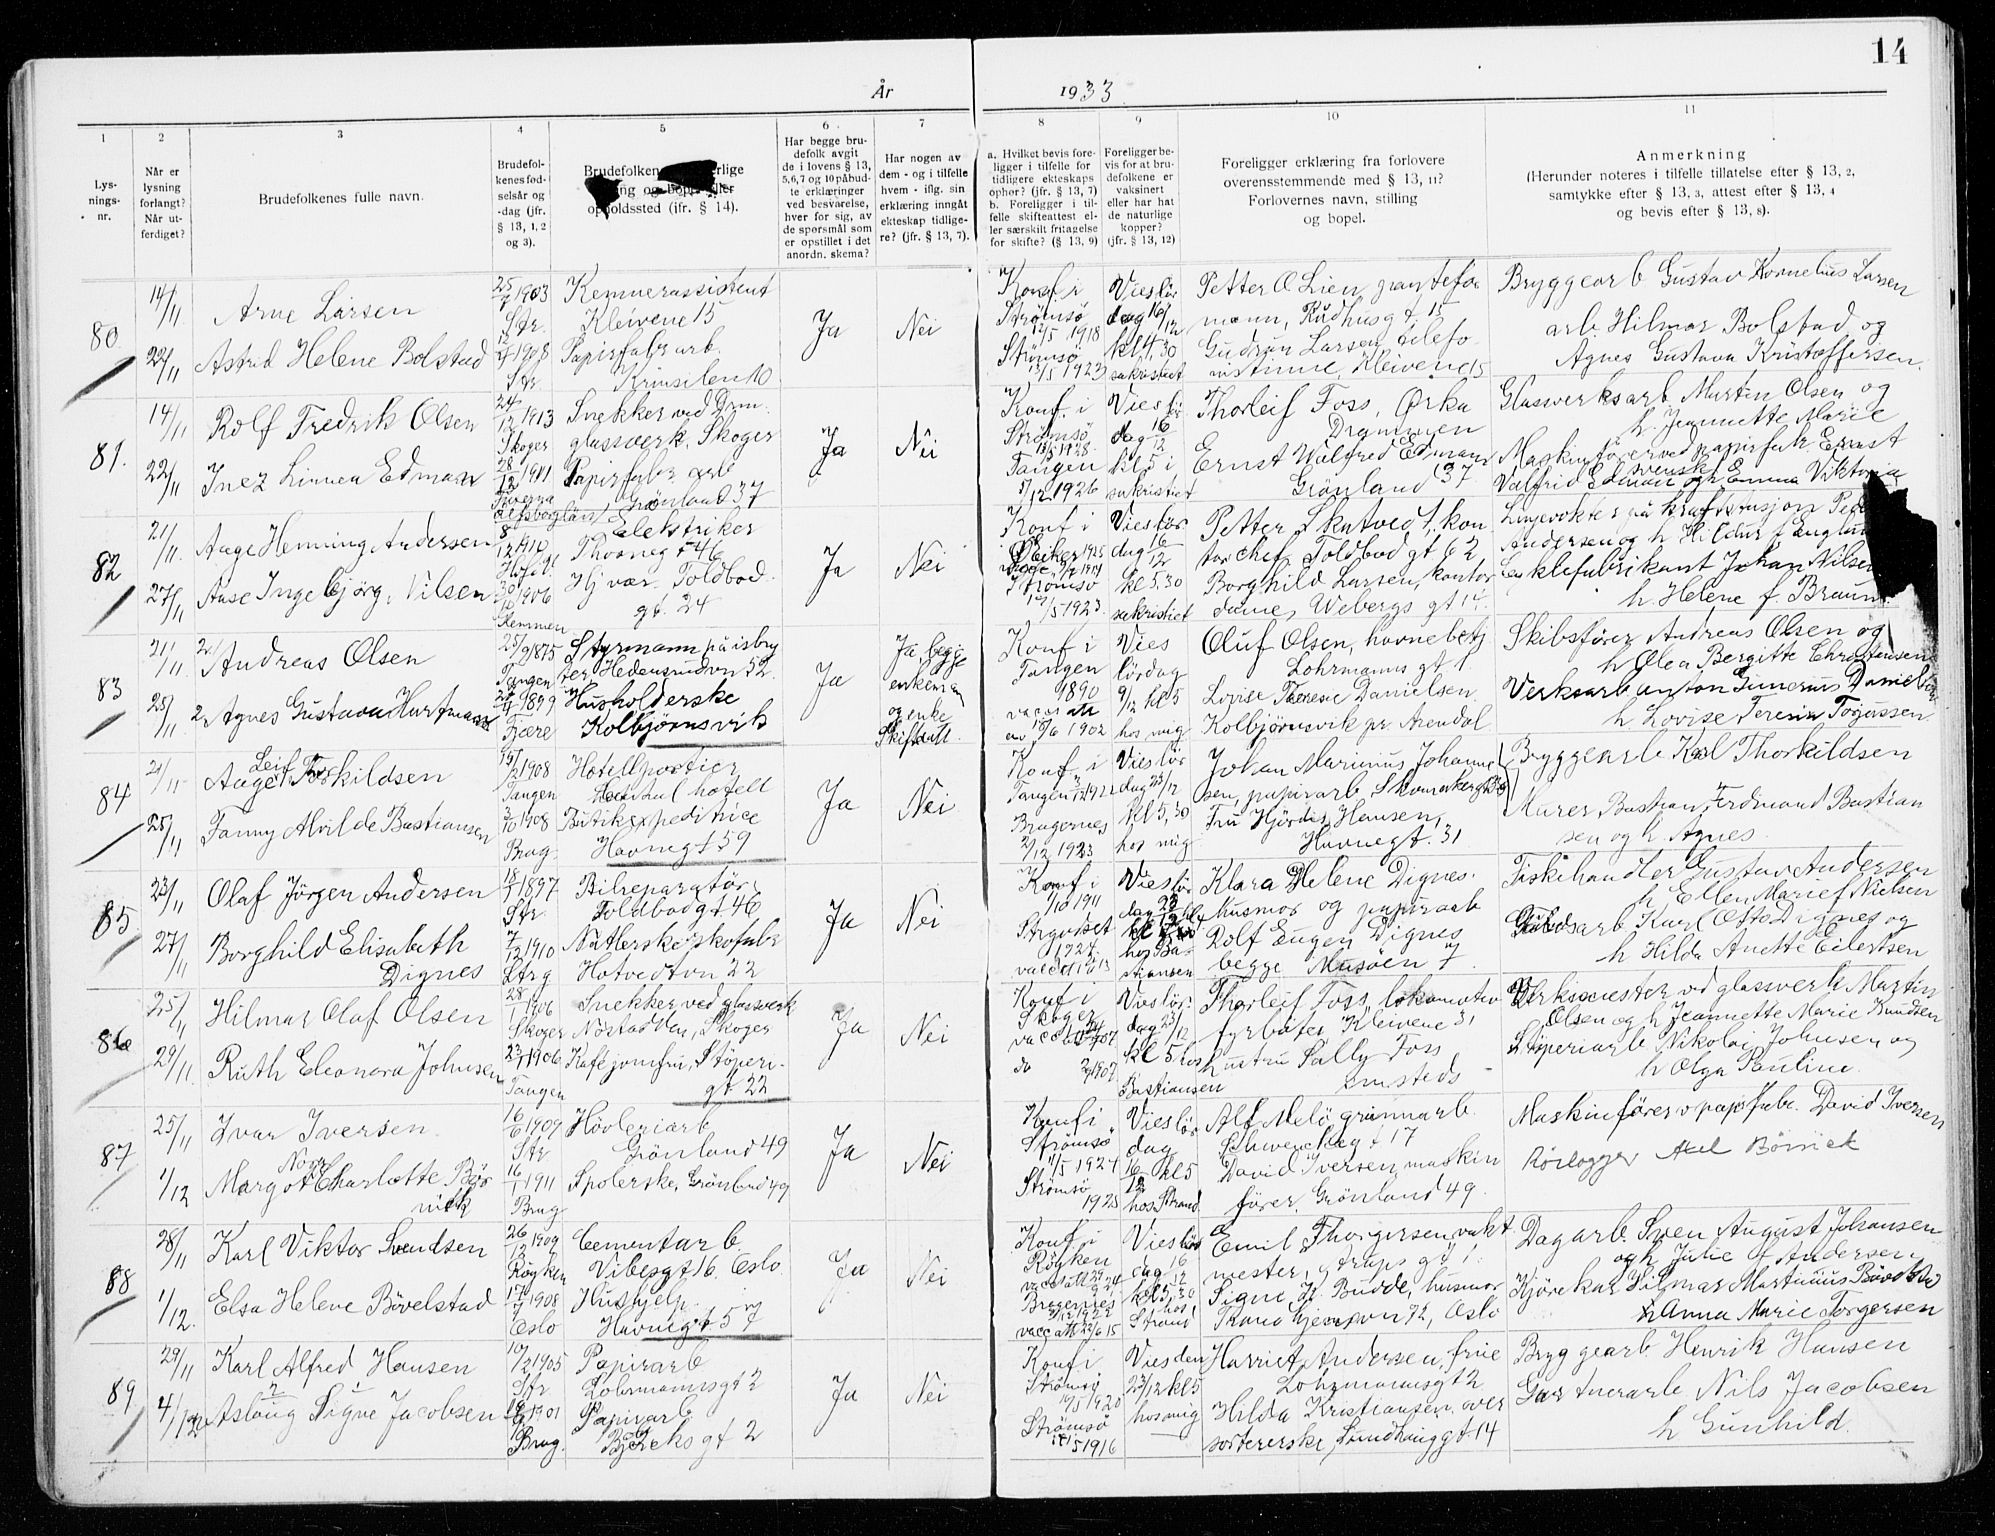 14
År 1933
1 2 3 4 5 6 7 8 9 10 11
Lys-
nings-
nr.
Når er
lysning
forlangt?
Når ut-
ferdiget?
Brudefolkenes fulle navn.
Brudefol-
kenes fød-
selsår og
-dag (jfr.
§ 13, 1, 2
og 3).
Brudefolkenes
og bopel eller
opholdssted (ifr. § 14).
Har begge bru-
defolk avgit
de i lovens § 13,
5,6,7 og 10 påbud-
te erklæringer
ved besvarelse,
hver for sig, av
de spørsmål som
er opstillet i det
anordn. skema?
Har nogen av
dem - og i tilfelle
hvem - iflg. sin
erklæring inngått
ekteskap tidlige-
re? (jfr. § 13, 7).
a. Hvilket bevis fore-
ligger i tilfelle for
tidligere ekteskaps
ophør? (jfr. § 13, 7)
b. Foreligger i til-
felle skifteattest el-
ler særskilt fritagelse
for skifte? (§ 13, 9)
Foreligger be-
vis for at bru-
defolkene er
vaksinert
eller har hat
de naturlige
kopper?
(jfr. § 13, 12)
Foreligger erklæring fra forlovere
overensstemmende med § 13, 11?
Forlovernes navn, stilling
og bopel.
Anmerkning
(Herunder noteres i tilfelle tillatelse efter § 13, 2,
samtykke efter § 13, 3, attest efter § 13, 4
og bevis efter § 13, 8).
80
14/11
22/11
Arne Larsen
Astrid Helene Bolstad
25/7 1903
Str.
12/4 1908
Str
Kemnerassistent
Kleivene 15
Papirfabr arb.
10
Ja
Nei
Konf i
Strømsø
12/5 1918
Strømsø
13/5 1923
Vieslör
dag 16/12
kl 4,30
sakristiet
Petter O Lien pantefor
mann, Rådhusgt. 15
Gudrun Larsen, telefo
nistinne, Kleivene 15
Bryggearb Gustav Kornelius Larsen
arb Hilmar Bolstad og
Agnes Gustava Kristoffersen.
81.
14/11
22/11
Rolf Fredrik Olsen
Inez Linnea Edman
24/12 1913
Skoger
28/12 1911
Snekker ved Drm.
glassverk. Skoger
Papirfabr arb
Grønland 37
Ja
Nei
Konf. i
Strømsø
1928
Tangen
1926
Vieslör
dag 16/12
kl 5 i
sakristiet
Thorleif Foss, Ørka
Drammen
Ernst Walfred Edman
Grønland 37
Glassverksarb Martin Olsen og
h. Jeannette Marie
Maskinfører ved papirfabr. Ernst
Valfrid Edman og h Emma Viktoria
svenske
82
21/11
27/11
Aage Henning Andersen
Aase Ingebjørg Nilsen
1906
Elektriker
Thornegt 46
Hj vær. Toldbod
gt. 24
Ja
Nei
Konf i
Strømsø
1923
Vieslør
dag 16/12
kl 5.30
sakristiet
Petter Skutved, kon
torchef Toldbod gt 62
Borghild Larsen, kontor
dame, Webergs gt 14.
Linjevokter på kraftstasjon
Andersen og h Hildur f Englun
Johan Nilsen
h. Helene f. Braun
83
21/11
25/11
Andreas Olsen
Agnes Gustava Hartmann
25/9 1875
Tangen
1899
Fjære
Styrmann på isbry
ter, Hedensrudvn 52.
Husholderske
Kolbjørnsvik
Ja
Ja, begge
enkemann
og enke
Skifteatt.
Konf i
Tangen
1890
vacc att
av 15/6 1902
Vies
lördag
9/12 kl 5
hos mig
Oluf Olsen, havnebetj
Lohrmanns gt 1.
Lovise Terene Danielsen
Kolbjørnsvik pr. Arendal
Skibsfører Andreas Olsen og
h Olea Bergitte Christensen
Verksarb Anton Gunerius Daniels
h Lovise Teresie Togussen.
84
21/11
25/11
Aage Leif Thorkildsen
Fanny Alvilde Bastiansen
15/2 1908
Tangen
5/10 1908
Brag.
Hotellportier
Central hotell
Butikexpeditrice
Havnegt 59
Ja
Nei
Konf. i
Tangen
Bragernes
2/12 1923
Vieslör
dag 23/12
kl 5,30
hos mig
Johan Marinius Johanne
sen, papirarb, Skomakergt 30
Fru Hjørdis Hansen,
Havnegt. 31
Bryggearb Karl Thorkildsen
Murer Bastian Ferdinand Bastian
sen og h Agnes.
85
23/11
27/11
Olaf Jörgen Andersen
Borghild Elisabeth
Dignes
18/1 1897
Str
7/12 1910
Strg
Bilreparatør
Toldbodgt 46
Nåtlerske skofabr
Hotvedtvn 22
Ja
Nei
Konf i
1911
Strgodset
1924
Vieslör
dag 23/12
hos Ba-
stiansen
Klara Helene Dignes.
husmor og papirarb
Rolf Eugen Dignes
begge Musøen 7
Fiskehandler Gustav Andersen
h Ellen Marie f Nielsen
Karl Otto Dignes og
h Hilda Anette Eilertsen
86
25/11
29/11
Hilmar Olaf Olsen
Ruth Eleonora Johnsen
28/1 1906
Skoger
23/1 1906
Tangen
Snekker ved glassverk
Nøstodden, Skoger
Kafejomfru, Støperi-
gt 22
Ja
Nei
Konf i
Skoger
do
Vieslör
dag 23/12
kl 5 hos
Bastiansen
Thorleif Foss, lokomotiv
fyrbøter, Kleivene 31
hustru Sally Foss
smsteds
Verksmester ved glassverk Martin
Olsen og h Jeannette Marie Knudsen
Støperiarb Nikolai Johnsen og
h Olga Pauline.
87
25/11
1/12
Ivar Iversen.
Margot Nora Charlotte Bör
nick
16/6 1909
Str
16/1 1911
Brag
Høvleriarb
Grønland 49
Spolerske, Grønland 49
Ja
Nei
Konf i
Strømsø
11/5 1924
Strømsø
1925
Vieslör
dag
16/12 kl 5
hos Strand
Alf Melø grønnarb.
Schwenckegt 17
David Iversen, maskin
fører, Grønland 49.
Maskinfører v papirfabr. David Iversen
Rørlegger Axel Börnick
88
28/11
1/12.
Karl Viktor Svendsen
Elsa Helene Bövelstad
26/12 1909
Røyken
17/7 1908
Oslo
Cementarb.
Vibesgt 16, Oslo.
Hushjelp
Havnegt 57
Ja
Nei
Konf. i
Røyken
Bragernes
vacc att 22/6 15
Vieslör
dag 16/12
kl 5,30
hos
Strand
Emil Thorgersen vakt
mester,
Signe H. Budde, husmor
72, Oslo
Dagarb. Sven August Johansen
og h Julie f Andersen
Kjørekar Hilmar Martinius Bövelstad
h Anna Marie Torgersen
89
29/11
4/12
Karl Alfred Hansen
Aslaug Signe Jacobsen
10/2 1905
Str
1901
Brag.
Papirarb
Lohrmannsgt 2
Papirarb
Bjørcks gt 2
Ja
Nei
Konf i
Strømsø
1920
Strømsø
1916
Vies den
23/12 kl 5
hos mig
Harriet Andersen, frue
Lohrmannsgt 2
Hilda Kristiansen over
sortererske, Sundhauggt. 14
Bryggearb Henrik Hansen
Gartnerarb Nils Jacobsen
h Gunhild.